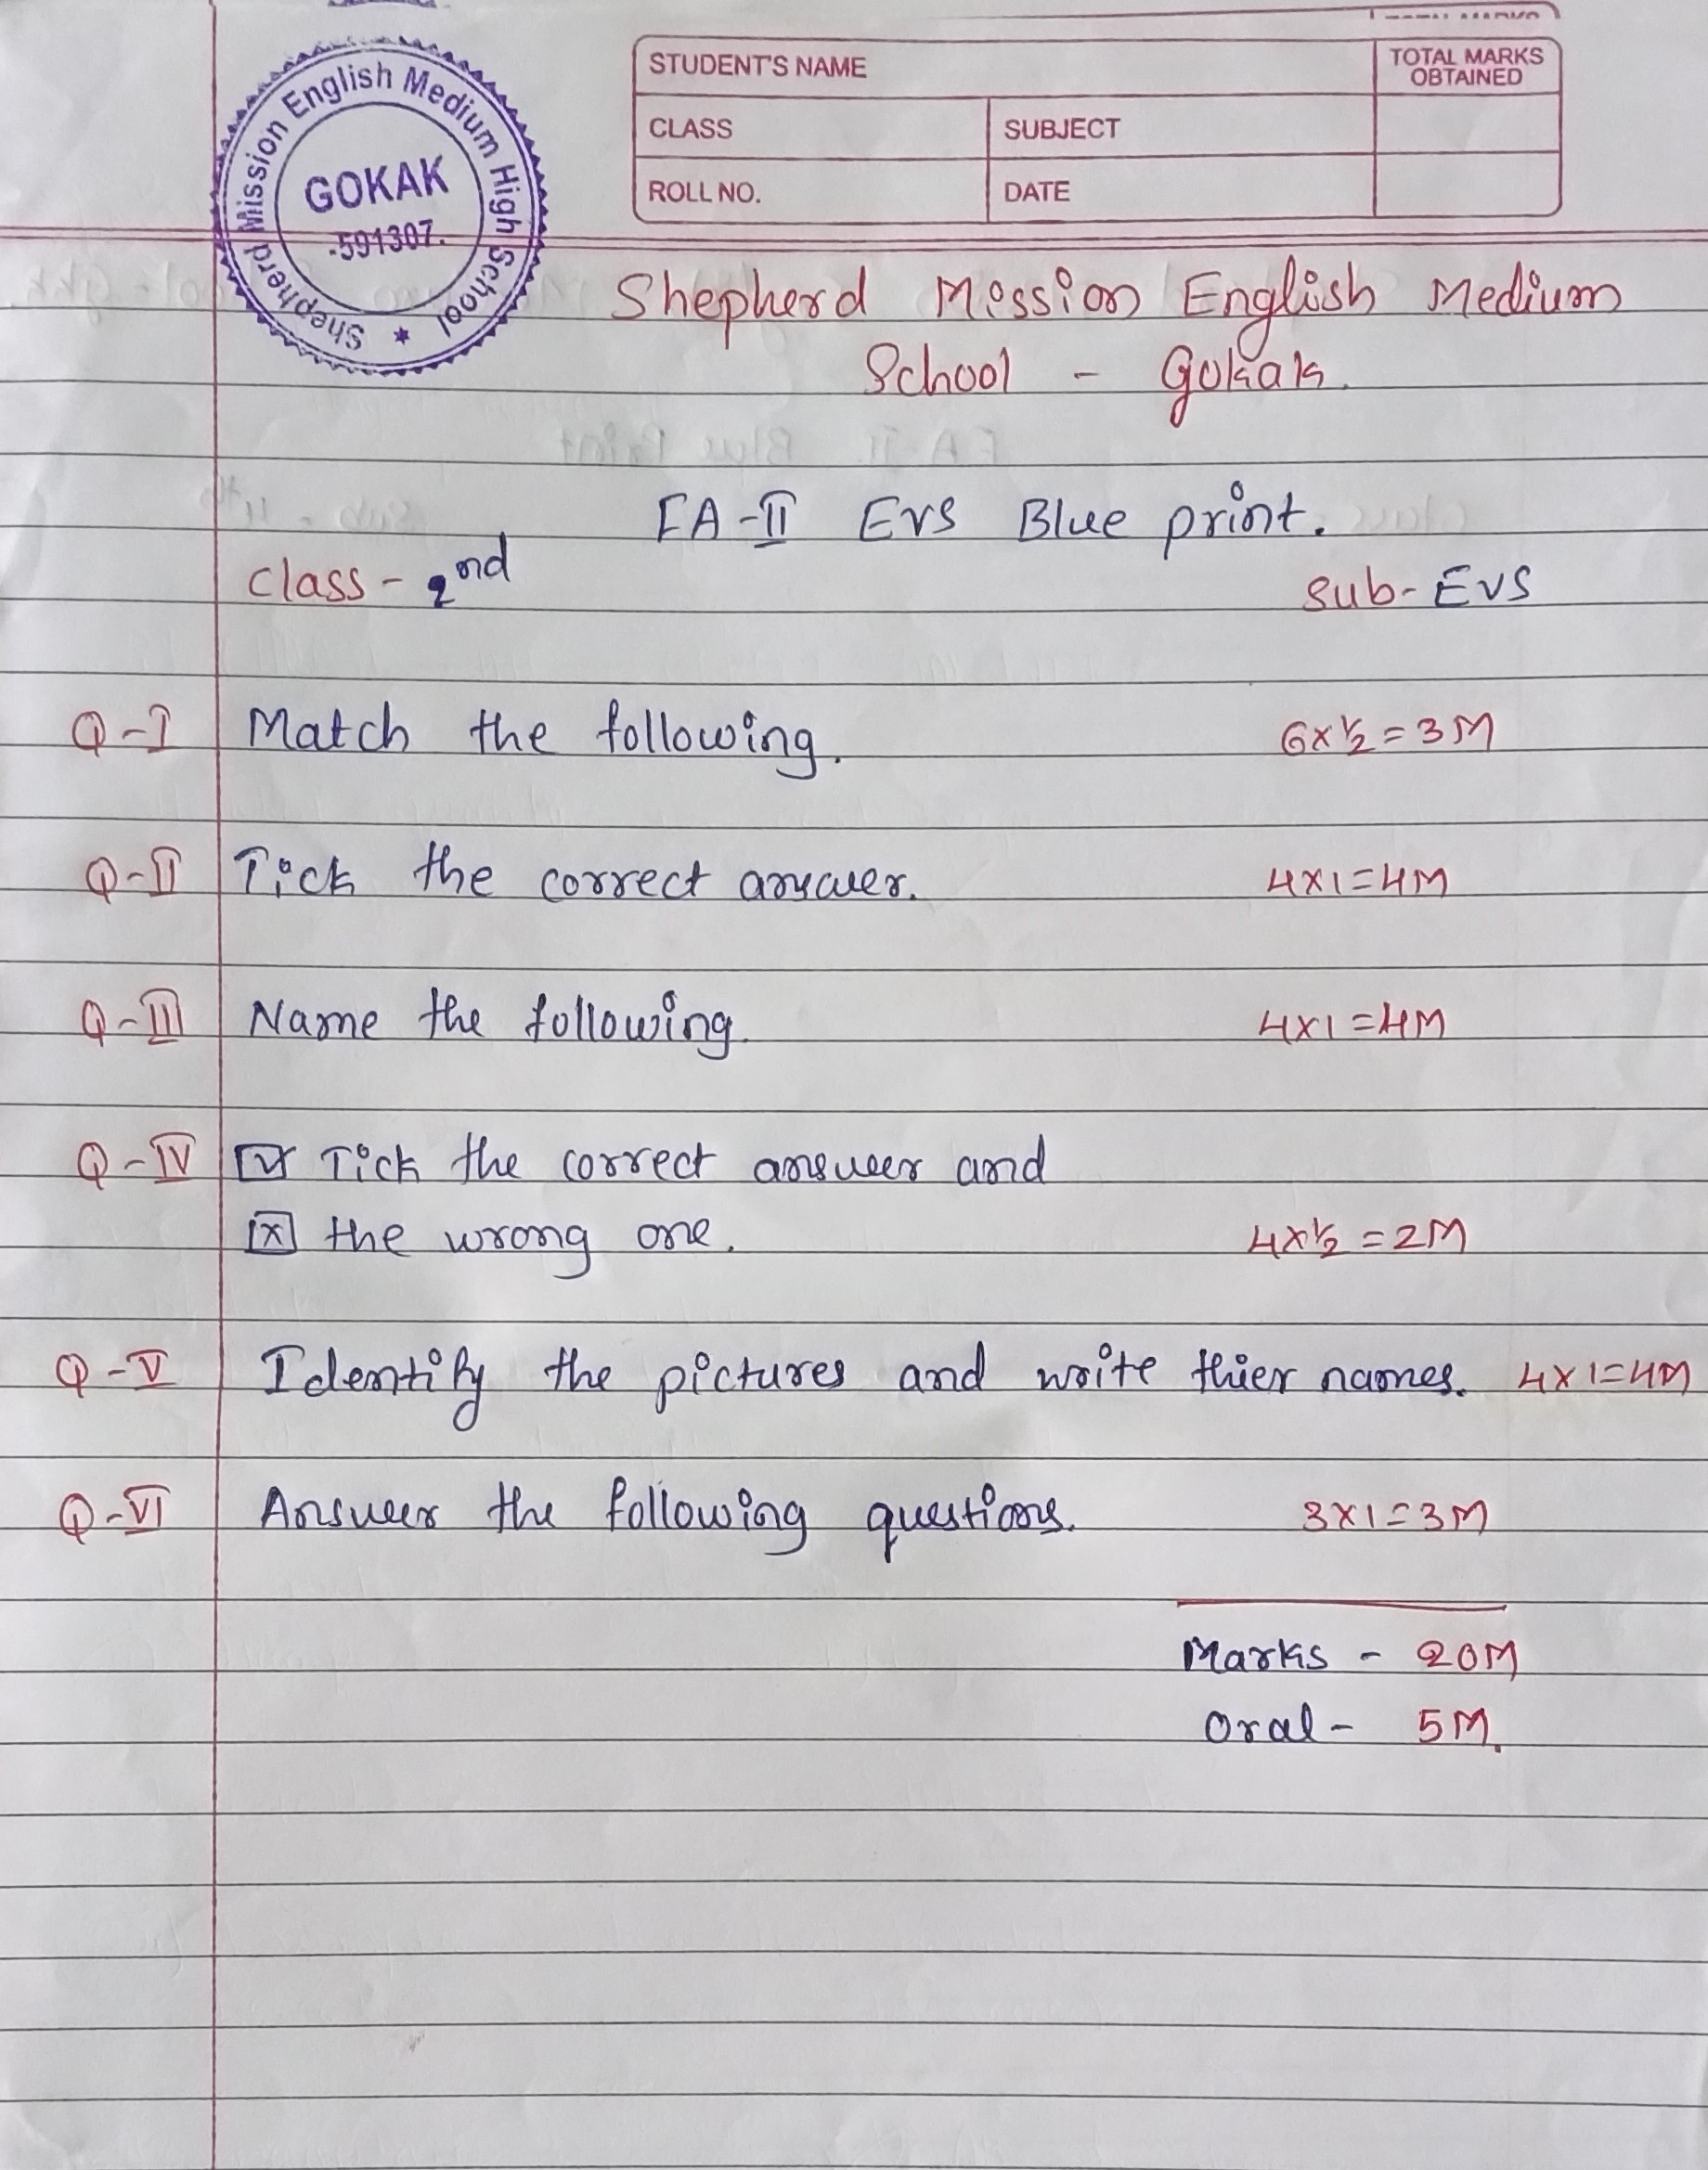 Shepherd Mission English Medium High School
GOKAK
-591307.
STUDENT'S NAME
TOTAL MARKS OBTAINED
CLASS
SUBJECT
ROLL NO.
DATE
Shepherd Mission English Medium
School - Gokak.
FA-II EVS Blue print.
class - 2nd
sub- EVS
Q-I Match the following. 6x½=3M
Q-II Tick the correct answer. 4x1=4M
Q-III Name the following. 4x1=4M
Q-IV ☑ Tick the correct answer and
☒ the wrong one. 4x½=2M
Q-V Identify the pictures and write thier names. 4x1=4M
Q-VI Answer the following questions. 3x1=3M
Marks - 20M
Oral - 5M.